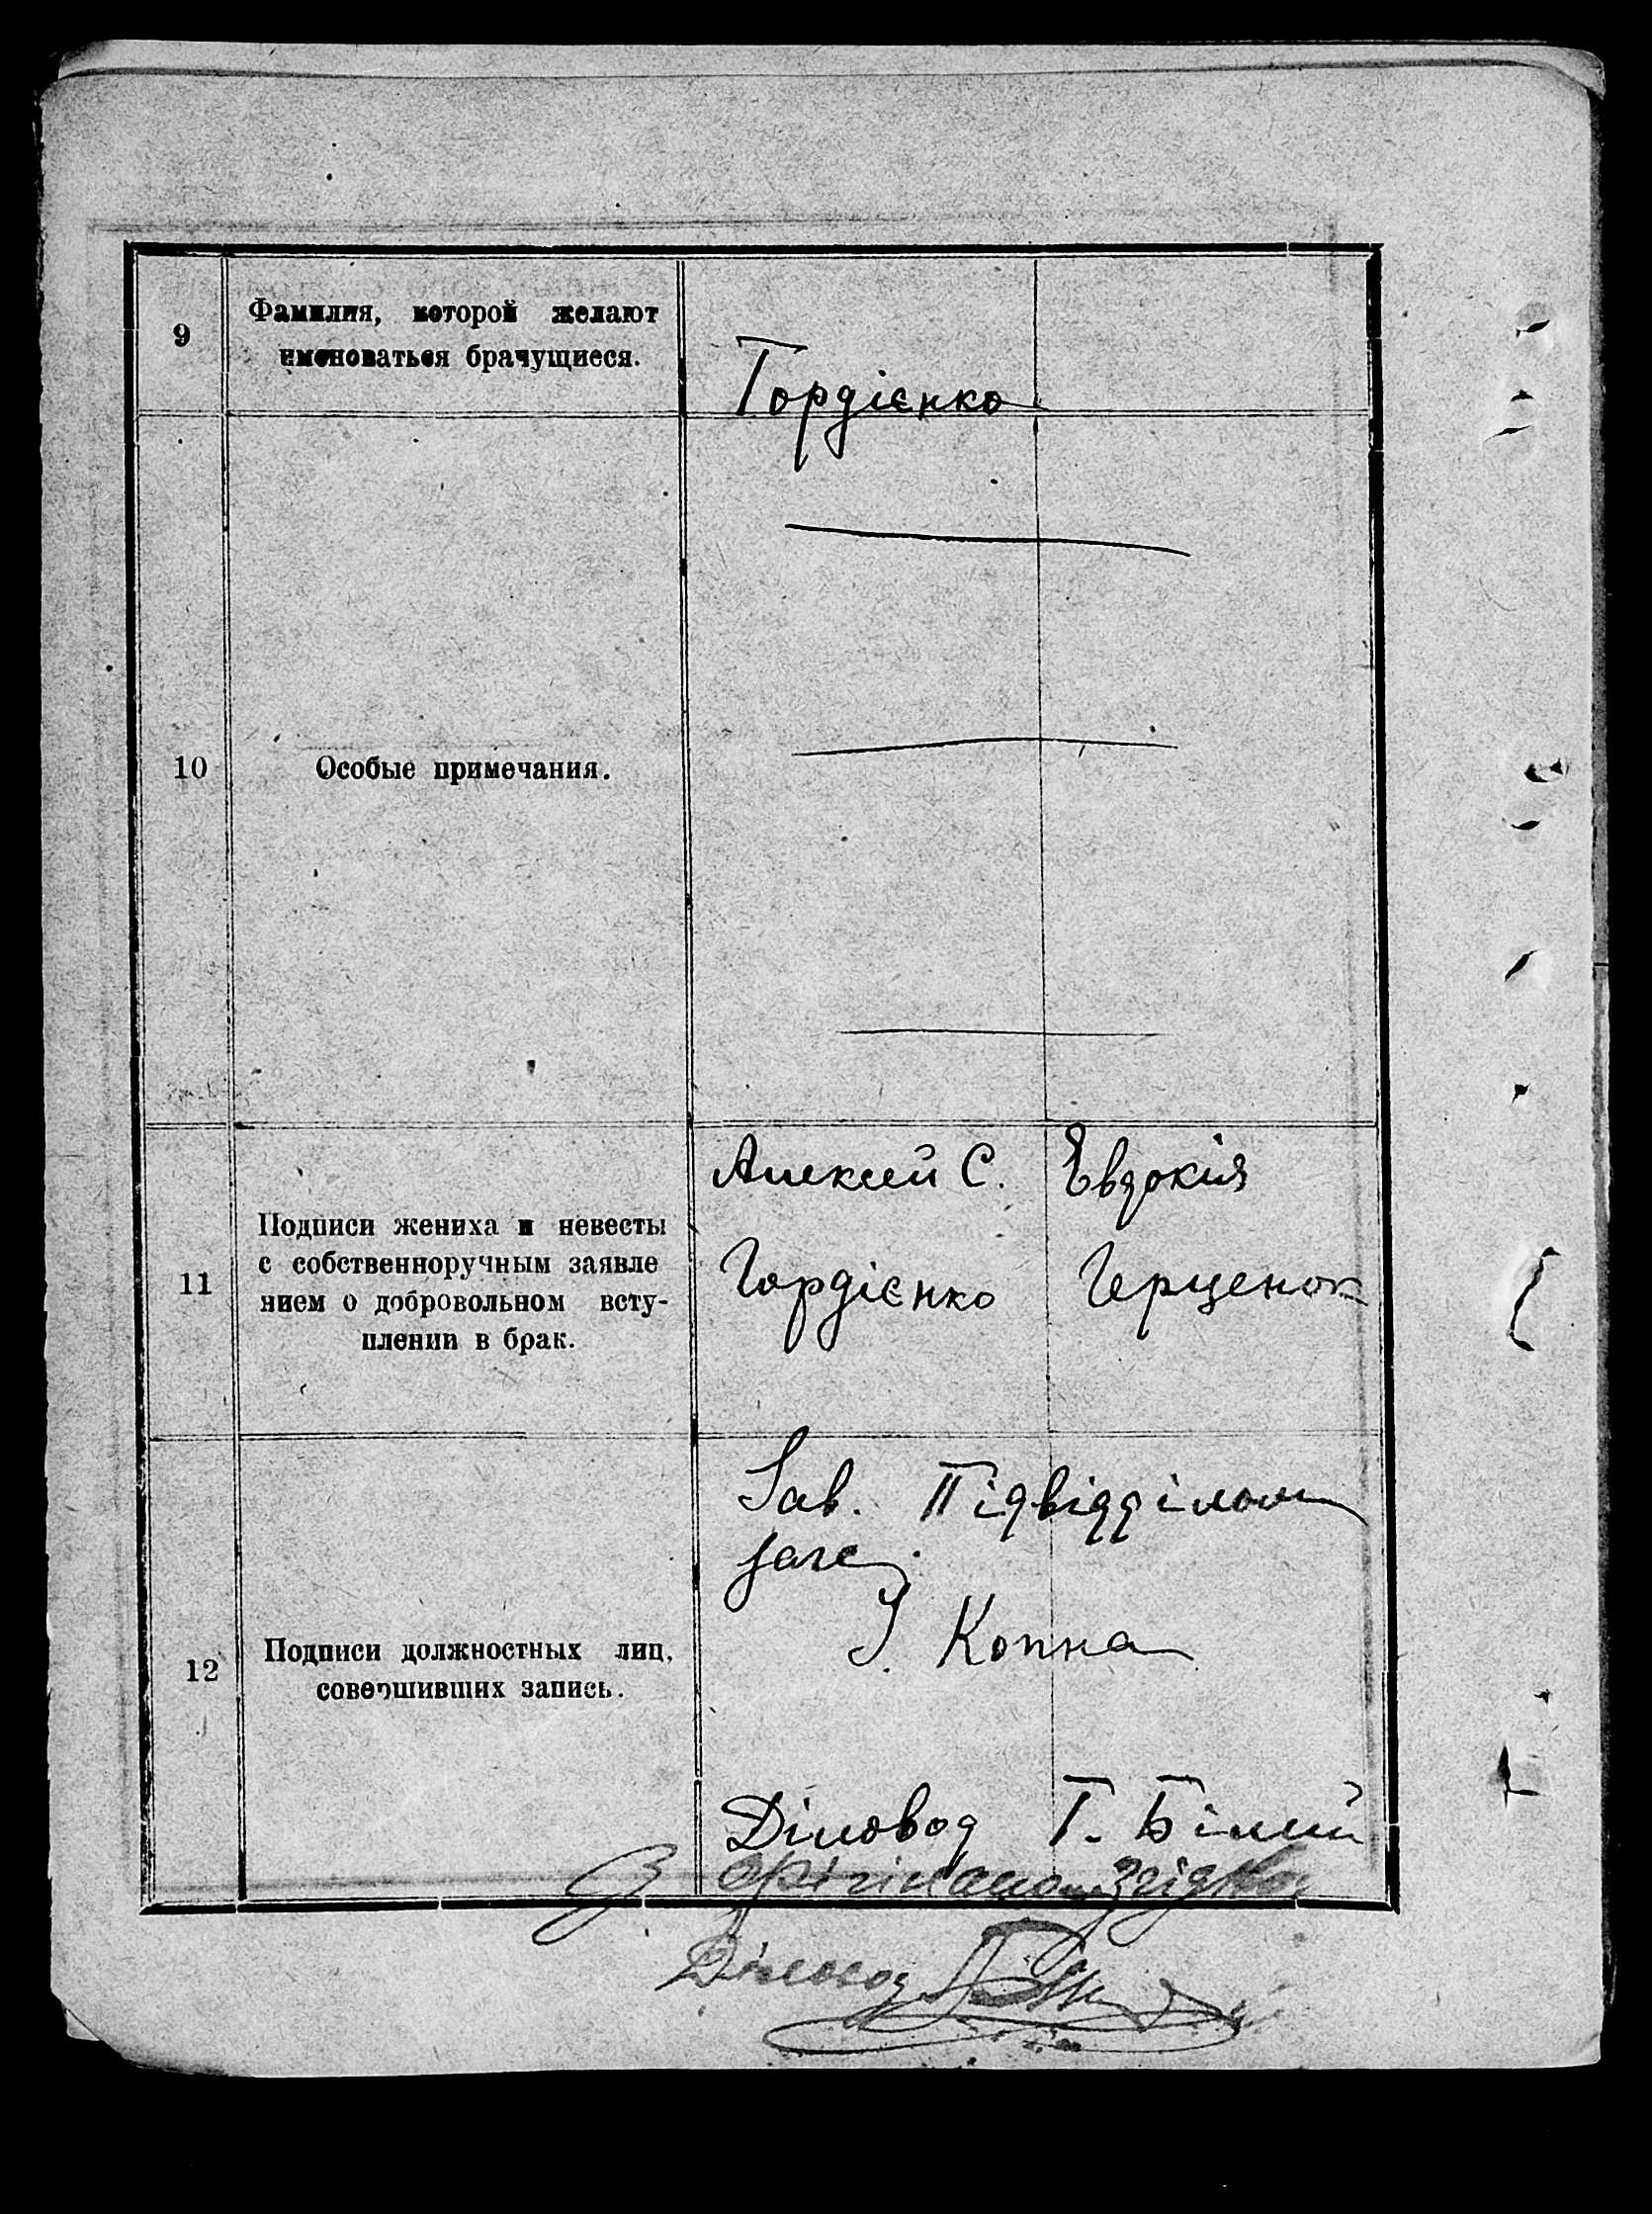 9
Фамилия, которой желают
именоваться брачущиеся.
Гордієнко
10
Особые примечания.
11
Подписи жениха и невесты
с собственноручным заявле
нием о добровольном всту-
плении в брак.
Алексей С.
Гордієнко
Евдокія
Герценок
12
Подписи должностных лиц,
совершивших запись.
Зав. Підвідділом
загс
І. Копна
Діловод Г. Білий
З орігіналом згідно
Діловод